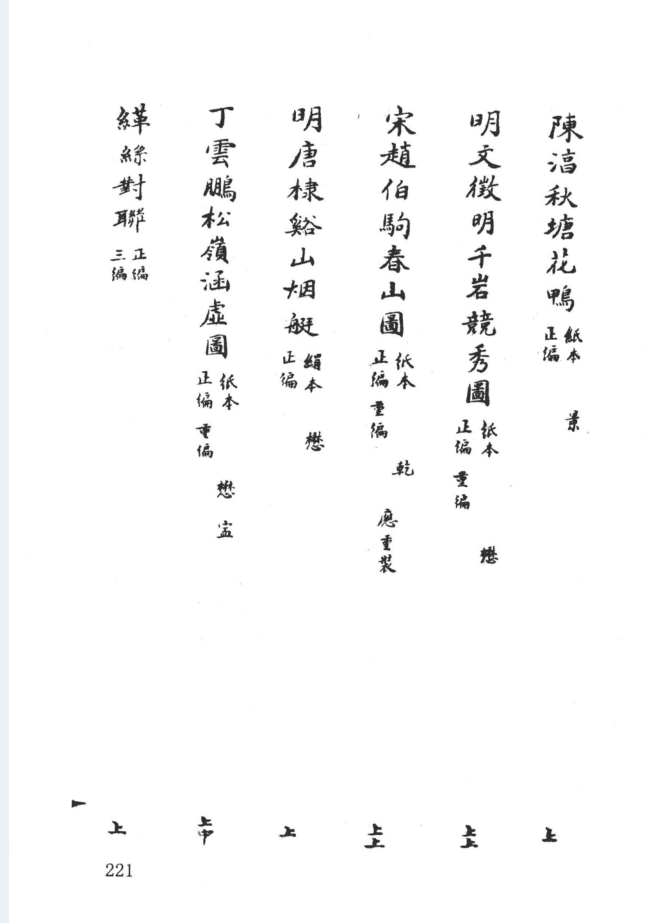 陳湻秋塘花鴨 紙本 正編 景 上
明文徵明千岩競秀圖 紙本 正編 重編 懋 上上
宋趙伯駒春山圖 紙本 正編 重編 乾 應重裝 上上
明唐棣谿山烟艇 絹本 正編 懋 上
丁雲鵬松嶺涵虛圖 紙本 正編 重編 懋 寍 上中
緙絲對聯 正編 三編 上
221